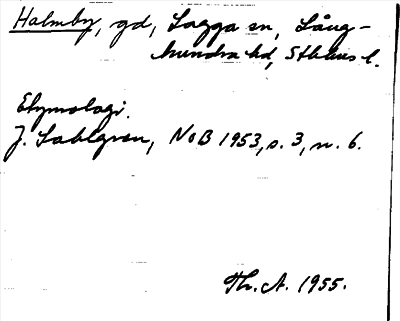 Halmby, gd, Lagga sn, Lång-
hundra hd, Sthlms l.
Etymologi.
J. Sahlgren, NoB 1953, s. 3, n. 6.
Th. A. 1955.